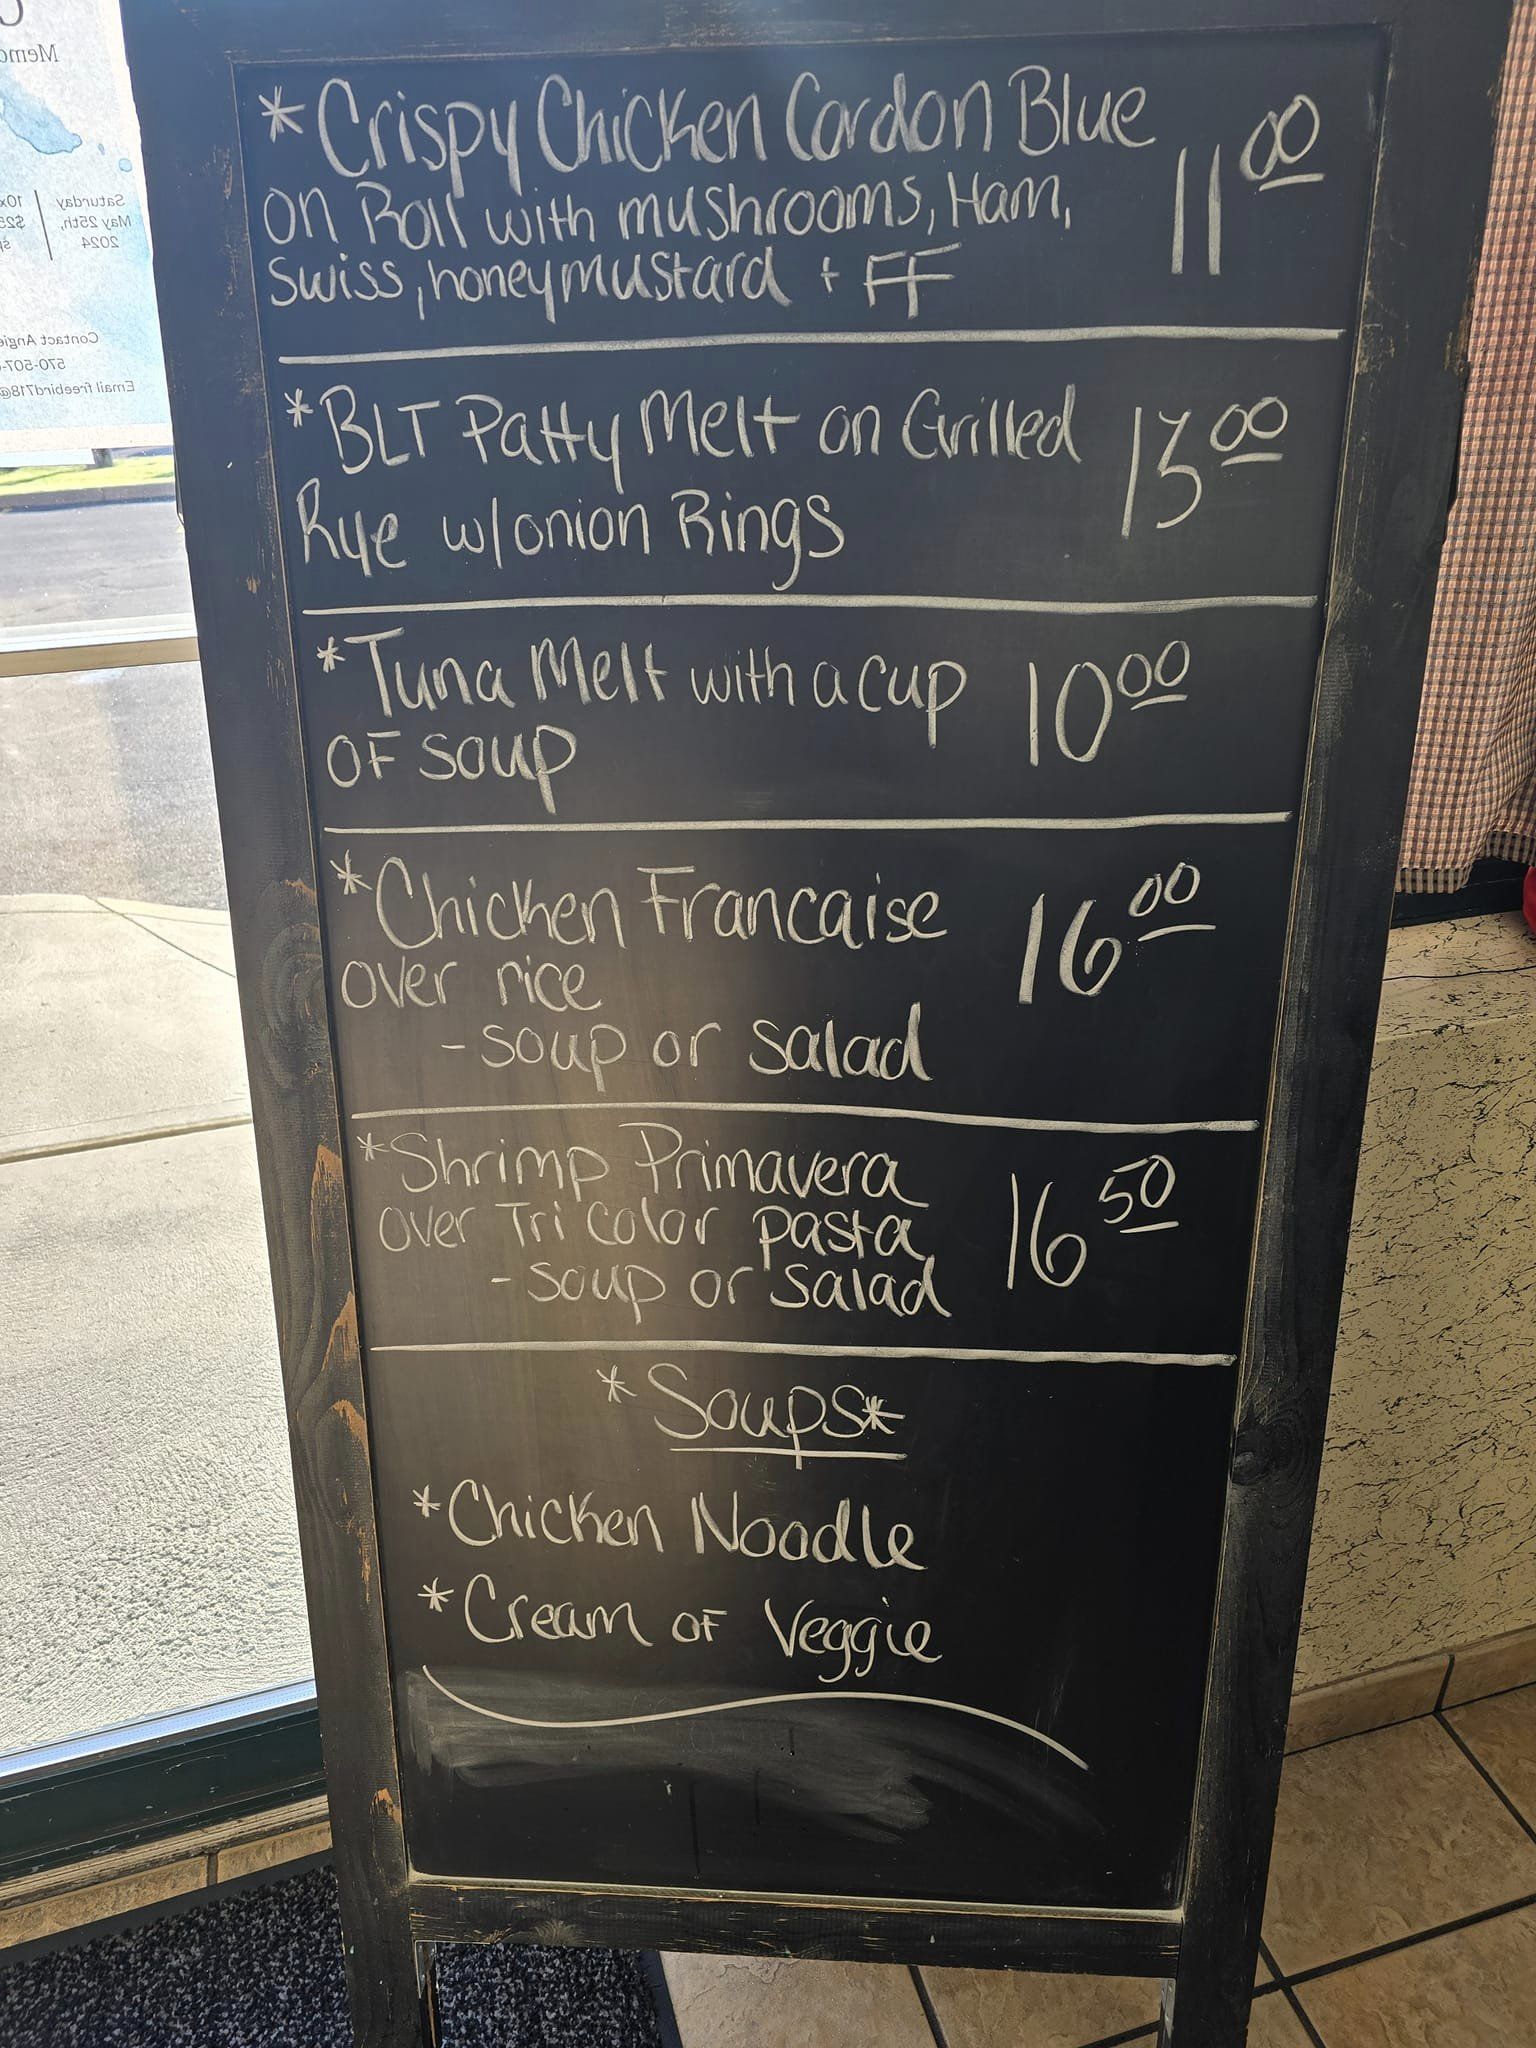 *Crispy Chicken Cordon Blue 11 00
on Roll with mushrooms, Ham,
Swiss, honeymustard + FF
*BLT Patty Melt on Grilled 13 00
Rye w/onion Rings
*Tuna Melt with a cup 10 00
OF soup
*Chicken Francaise 16 00
over rice
- soup or salad
*Shrimp Primavera 16 50
over Tri color pasta
- soup or salad
*Soups*
*Chicken Noodle
*Cream of Veggie
Saturday
May 25th,
2024
Contact Angie
570-507
Email freebird718@